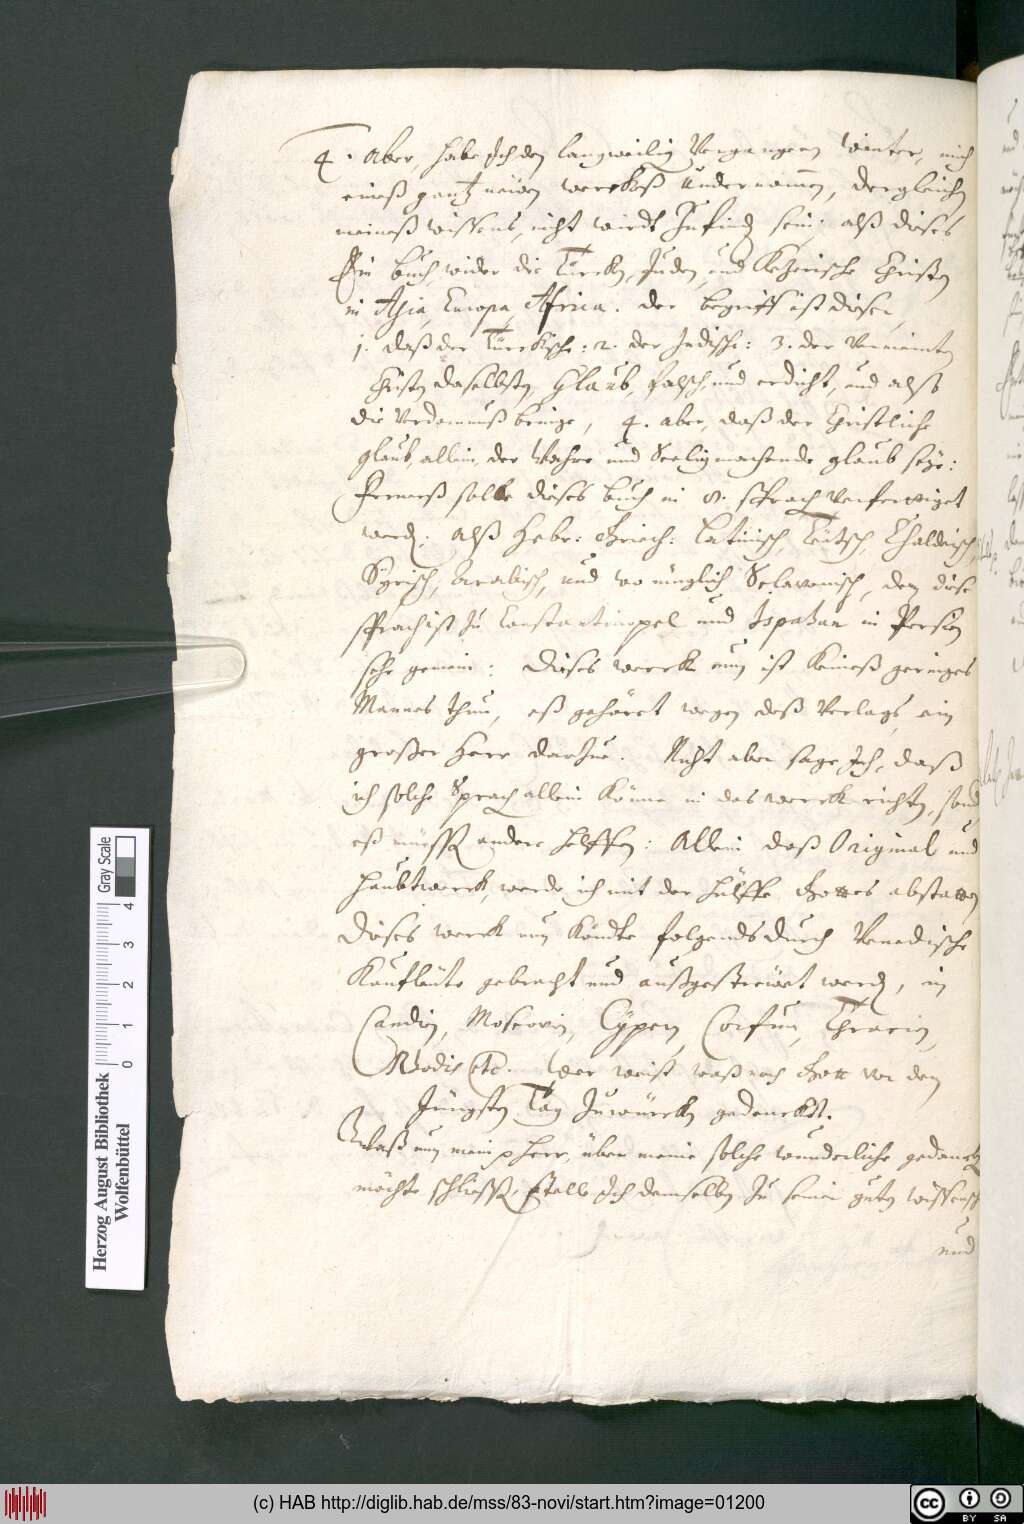 4. Aber, habe Ich den langweilig Vergangnen Winter, mich
eineß gantz neüwen werckhß Undernommen, dergleichen
meineß wissens, nicht wirdt Zufinden sein: alß dieses
Ein Buch, wider die Türcken, Juden, und Ketzerische Christen
in Asia, Europa, Africa. der begriff ist dieser,
1. daß der Türckische: 2. der Jüdische: 3. der Vermeinten
Christen daselbsten, Glaub, falsch, und erdicht, und alß
die Verdamnuß bringe, 4. aber, daß der Christliche
glaub, allein, der Wahre und Seeligmachende glaub seye:
Fernerß solle dieses Buch in 8. Sprach Verfertiget
werden: Alß Hebr: Griech: Latinisch, Teütsch, Chaldeisch,
Syrisch, Arabisch, und wo müglich Sclavonisch, den diese
Sprach ist zu Constantinopel und Ispahan in Persien
sehr gemein: Dieses werck nun ist keineß geringes
Mannes thun, eß gehöret wegen deß Verlags, ein
großer Herr darzue. Nicht aber sage Ich, daß
ich solche Sprach allein könne in das werck richten, sond
eß müssen andere helffen: Allein daß Original und
Haubtwerck, werde ich mit der hülffe Gottes abstatten
Dieses werck nun köndte folgends durch Venedische
Kaufleute gebracht und außgestreüwet werden, in
Candien, Moscovien, Cypern, Corfun, Thracien,
Rhodis etc. Wer weist waß noch Gott vor dem
Jüngsten Tag zuwürcken gedenckt.
Waß nun mein p Herr, über meine solche wunderliche gedancken
möchte schliessen, stelle Ich demselben zu seinem guten wissenst
und
Herzog August Bibliothek
Wolfenbüttel
0 1 2 3 4
Gray Scale
(c) HAB http://diglib.hab.de/mss/83-novi/start.htm?image=01200
cc BY SA